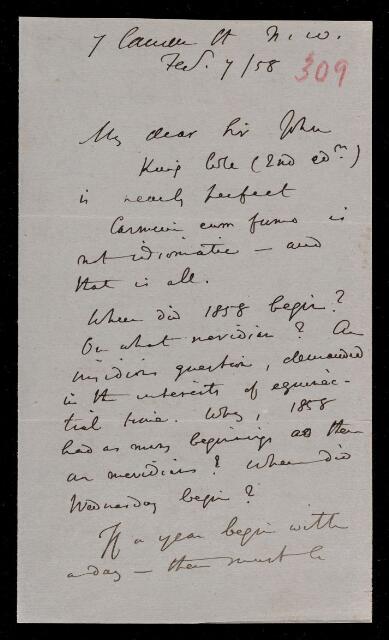 7 Camden St N.W.
Feb. 7/58
309
My dear Sir John
King Cole (2nd edn)
is nearly perfect
Carmen cum fumo is
not idiomatic — and
that is all.
When did 1858 begin?
On what meridian? An
insidious question, demanded
in the interests of equinoc-
tial time. Why, 1858
had as many beginnings as there
are meridians? When did
Wednesday begin?
If a year begin with
a day — there must be